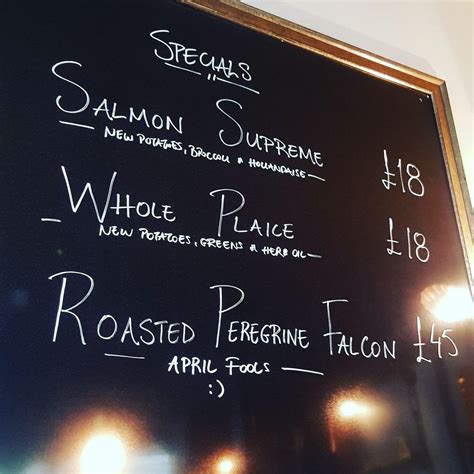 SPECIALS
SALMON SUPREME £18
NEW POTATOES, BROCCOLI & HOLLANDAISE
WHOLE PLAICE £18
NEW POTATOES, GREENS & HERB OIL
ROASTED PEREGRINE FALCON £45
APRIL FOOLS
:)